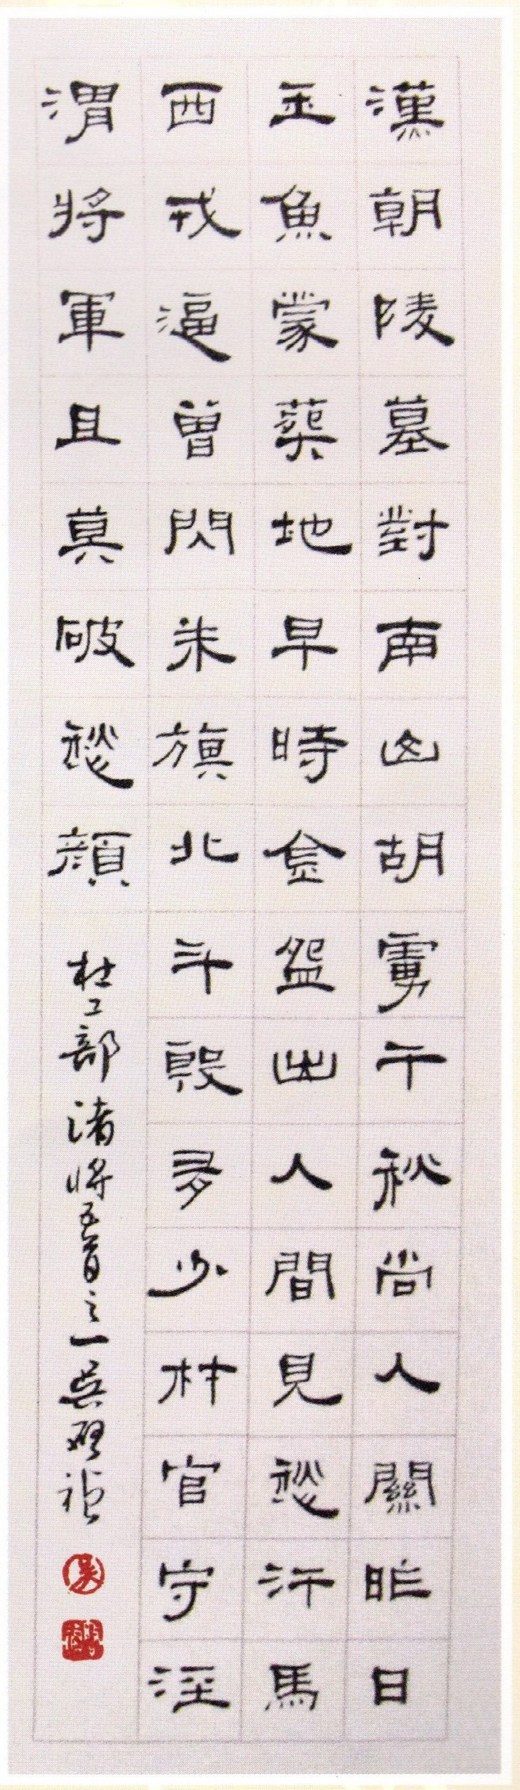 漢朝陵墓對南山胡虜千秋尚入關昨日
玉魚蒙葬地早時金盌出人間見愁汗馬
西戎逼曾閃朱旗北斗殷多少材官守涇
渭將軍且莫破愁顏 杜工部諸將五首之一 吳啓禎